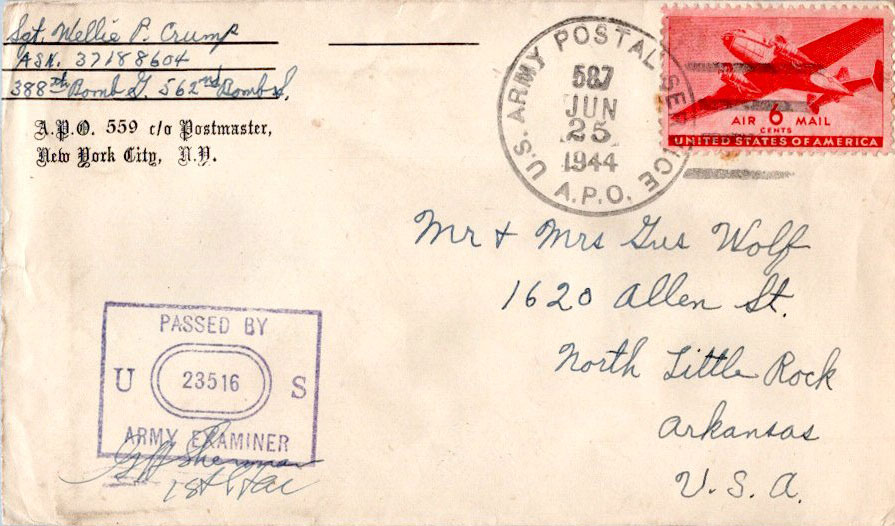 Sgt. Wellie P. Crump
ASN. 37188604
388th Bomb G. 562nd Bomb S.
A.P.O. 559 c/o Postmaster,
New York City, N.Y.
U.S. ARMY POSTAL SERVICE
A.P.O.
587
JUN
25
1944
AIR 6 MAIL
CENTS
UNITED STATES OF AMERICA
Mr + Mrs Gus Wolf
1620 Allen St.
North Little Rock
Arkansas
U.S.A.
PASSED BY
U 23516 S
ARMY EXAMINER